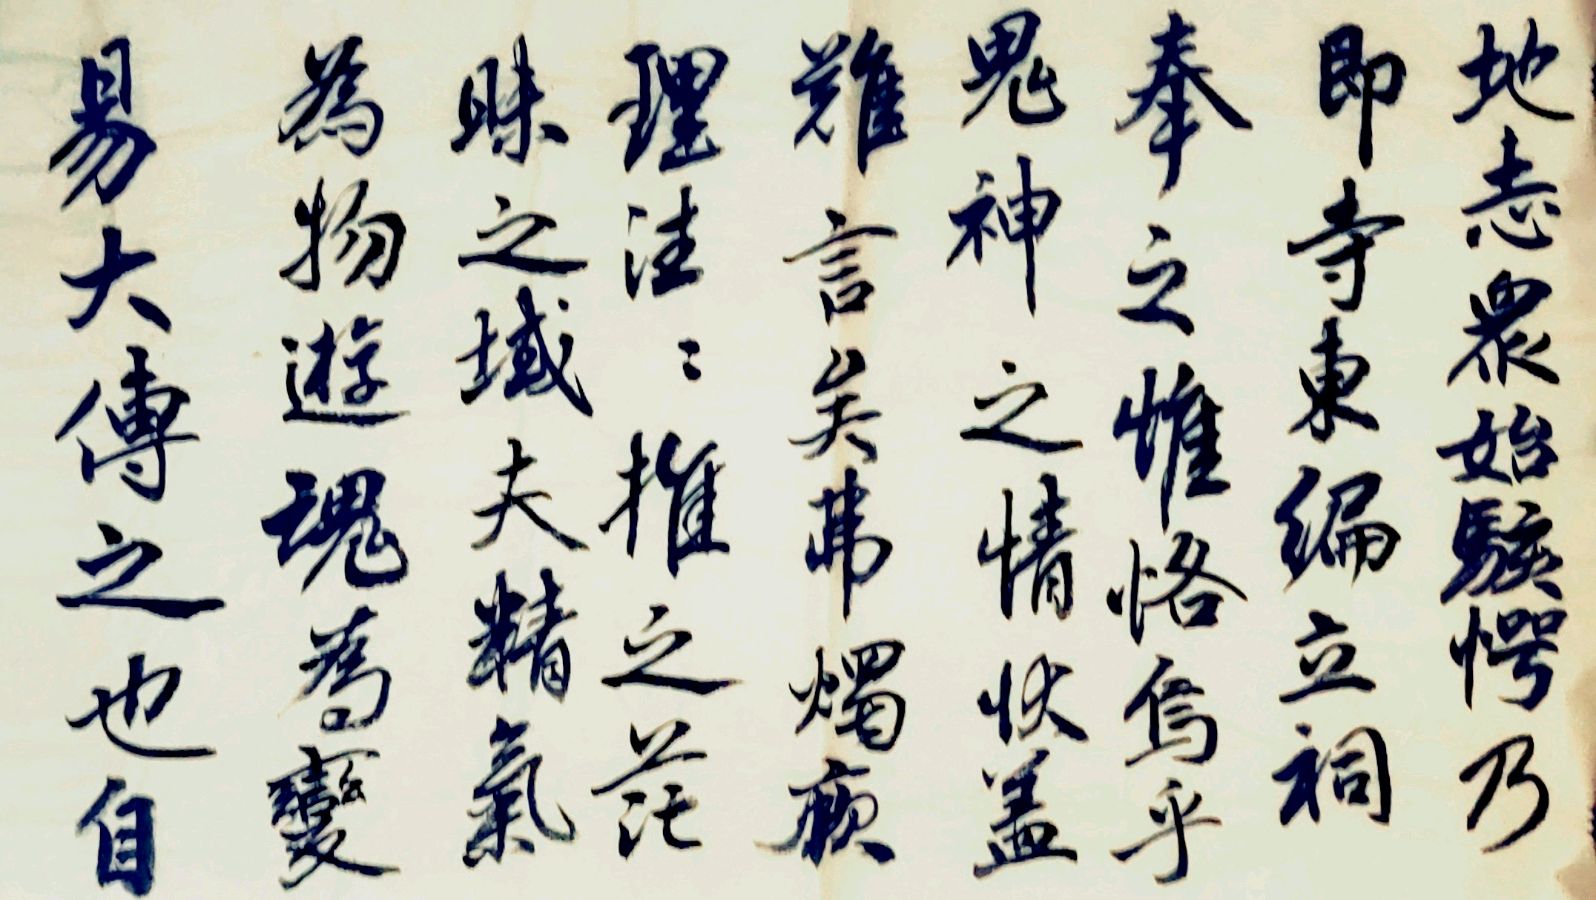 地志衆始駭愕乃
即寺東編立祠
奉之惟恪烏乎
鬼神之情狀盖
難言矣弗燭厥
理往々推之茫
昧之域夫精氣
為物遊魂為變
易大傳之也自